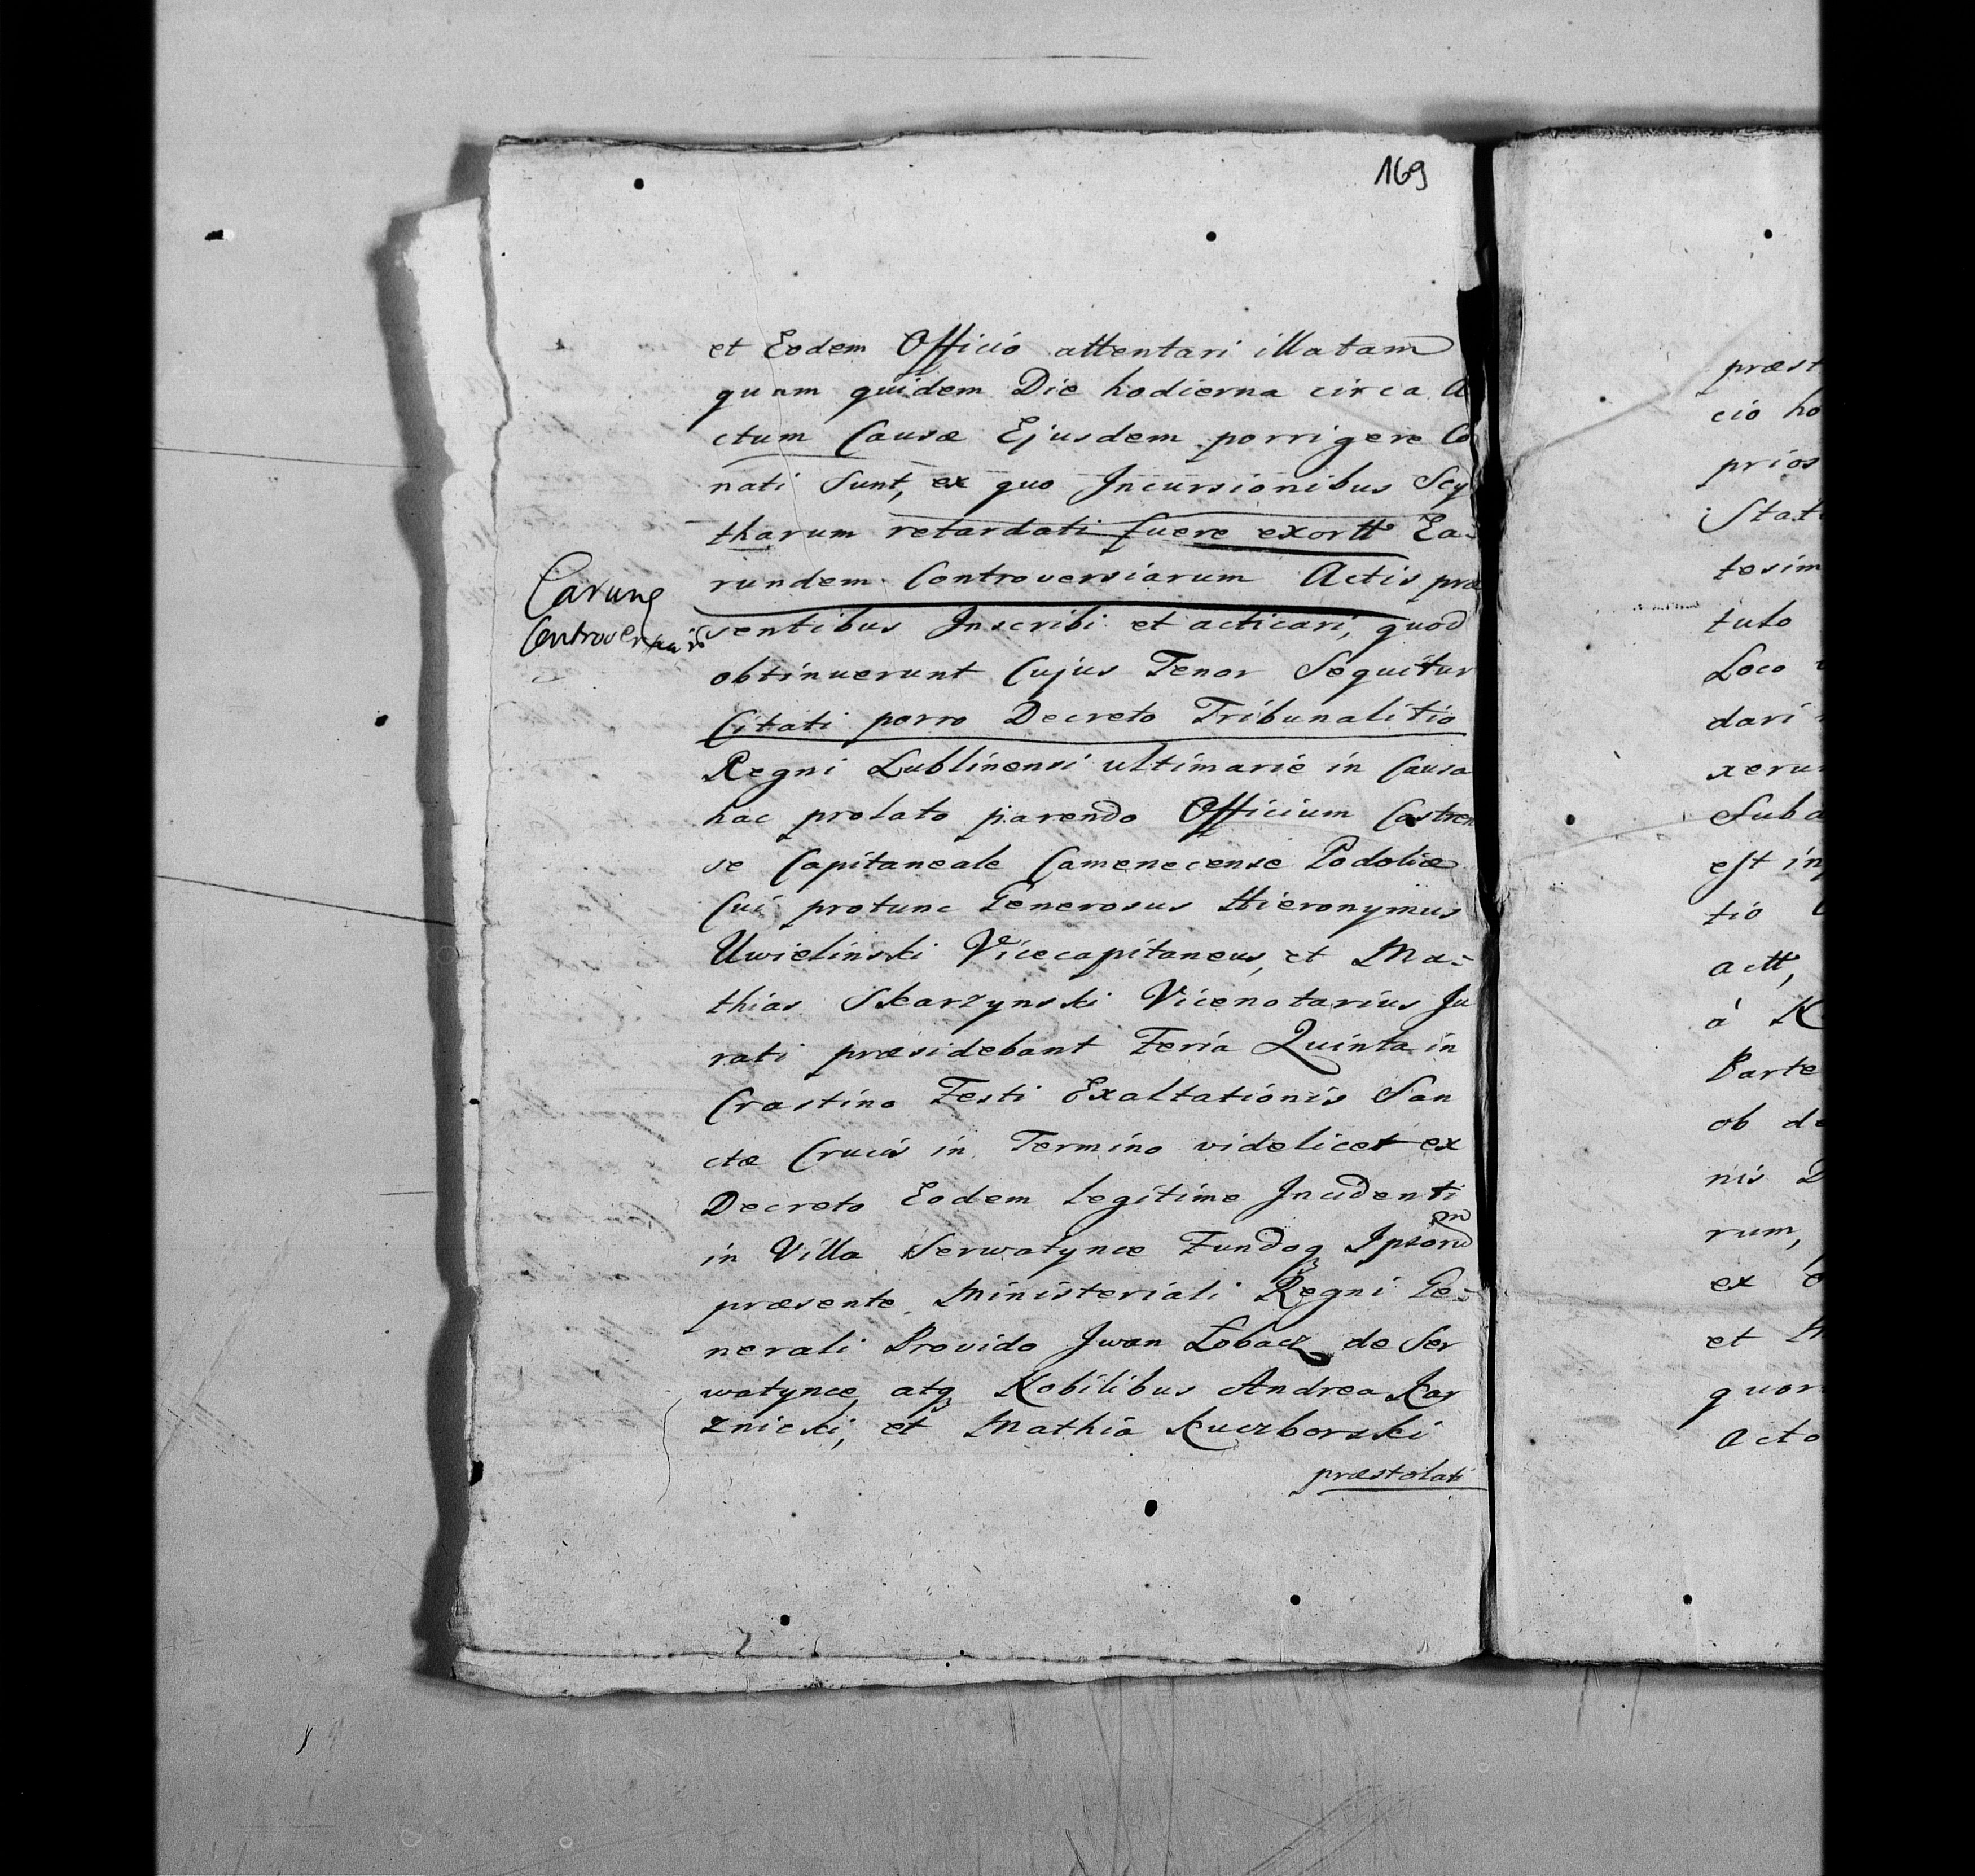 169
et Eodem Officio attentari illatam
quam quidem Die hodierna circa A
ctum Causæ Ejusdem porrigere Co
nati Sunt, ex quo Incursionibus Scy
tharum retardati fuere exortt Ea-
rundem Controversiarum Actis præ
sentibus Inscribi et acticari, quod
obtinuerunt Cujus Tenor Sequitur
Citati porro Decreto Tribunalitio
Regni Lublinensi ultimarie in Causa
hac prolato parendo Officium Castren
se Capitaneale Camenecense Podoliæ
Cui protunc Generosus Hieronymus
Uwielinski Vicecapitaneus, et Ma-
thias Skarzynski Vicenotarius Ju
rati præsidebant Feria Quinta in
Crastino Festi Exaltationis San
ctæ Crucis in Termino videlicet ex
Decreto Eodem legitime Incidenti
in Villa Serwatynce Fundoq Ipsorum
præsente Ministeriali Regni Ge-
nerali Provido Iwan Lobacz de Ser
watynce, atq Nobilibus Andrea Kar
znicki, et Mathia Kuczborski
præstolati
præst
cio ho
prios
Stat
tesim
tulo
Loco
dari
xeru
Suba
est in
tio
actt,
à
Parte
ob de
nis D
rum,
ex
et
quor
Acto